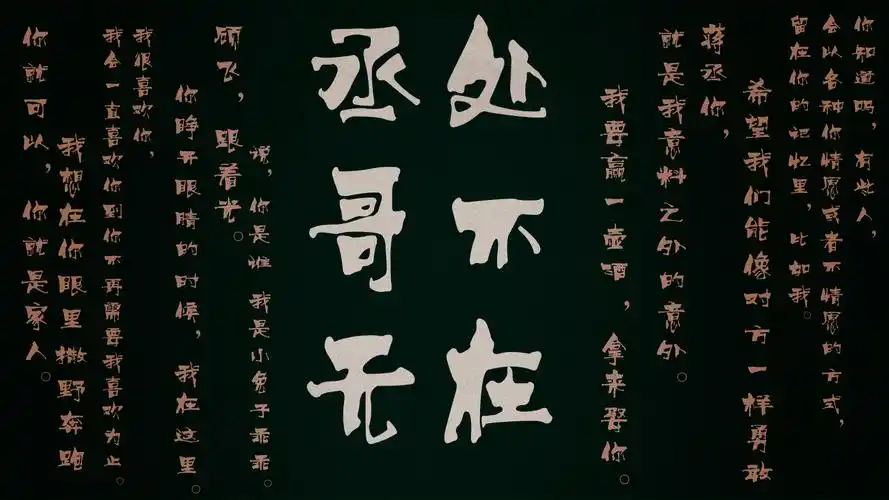 你知道吗，有些人，
会以各种你情愿或者不情愿的方式，
留在你的记忆里，比如我。
希望我们能像对方一样勇敢
蒋丞你，
就是我意料之外的意外。
我要赢一壶酒，拿来娶你。
丞哥无
处不在
说，你是谁 我是小兔子乖乖。
顾飞，跟着光。
你睁开眼睛的时候，我在这里。
我很喜欢你，
我会一直喜欢你到你不再需要我喜欢为止。
我想在你眼里撒野奔跑
你就可以，你就是家人。